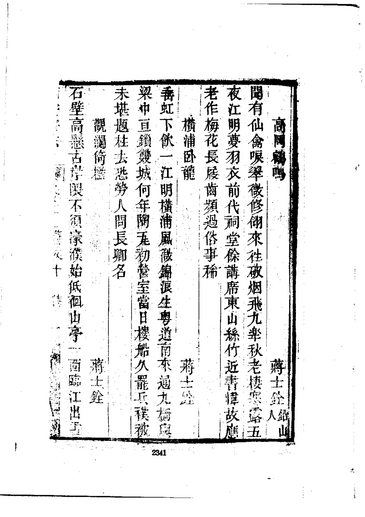 高岡鶴鳴 蔣士銓 鉛山人
聞有仙禽唳翠微修翎來往破烟飛九皋秋老棲寒露五
夜江明夢羽衣前代祠堂餘講席東山絲竹近書幃故應
老作梅花長屐齒頻過俗事稀
橫浦臥龍 蔣士銓
垂虹下飲一江明橫浦風微錦浪生粵道南來通九
梁中亘鎖城何年閣道初營室當日樓船久罷兵襆被
未堪題柱去恐勞人問長卿名
觀瀾倚檻 蔣士銓
石壁高懸古岸不須濠濮始低徊山亭一面臨江出
2341